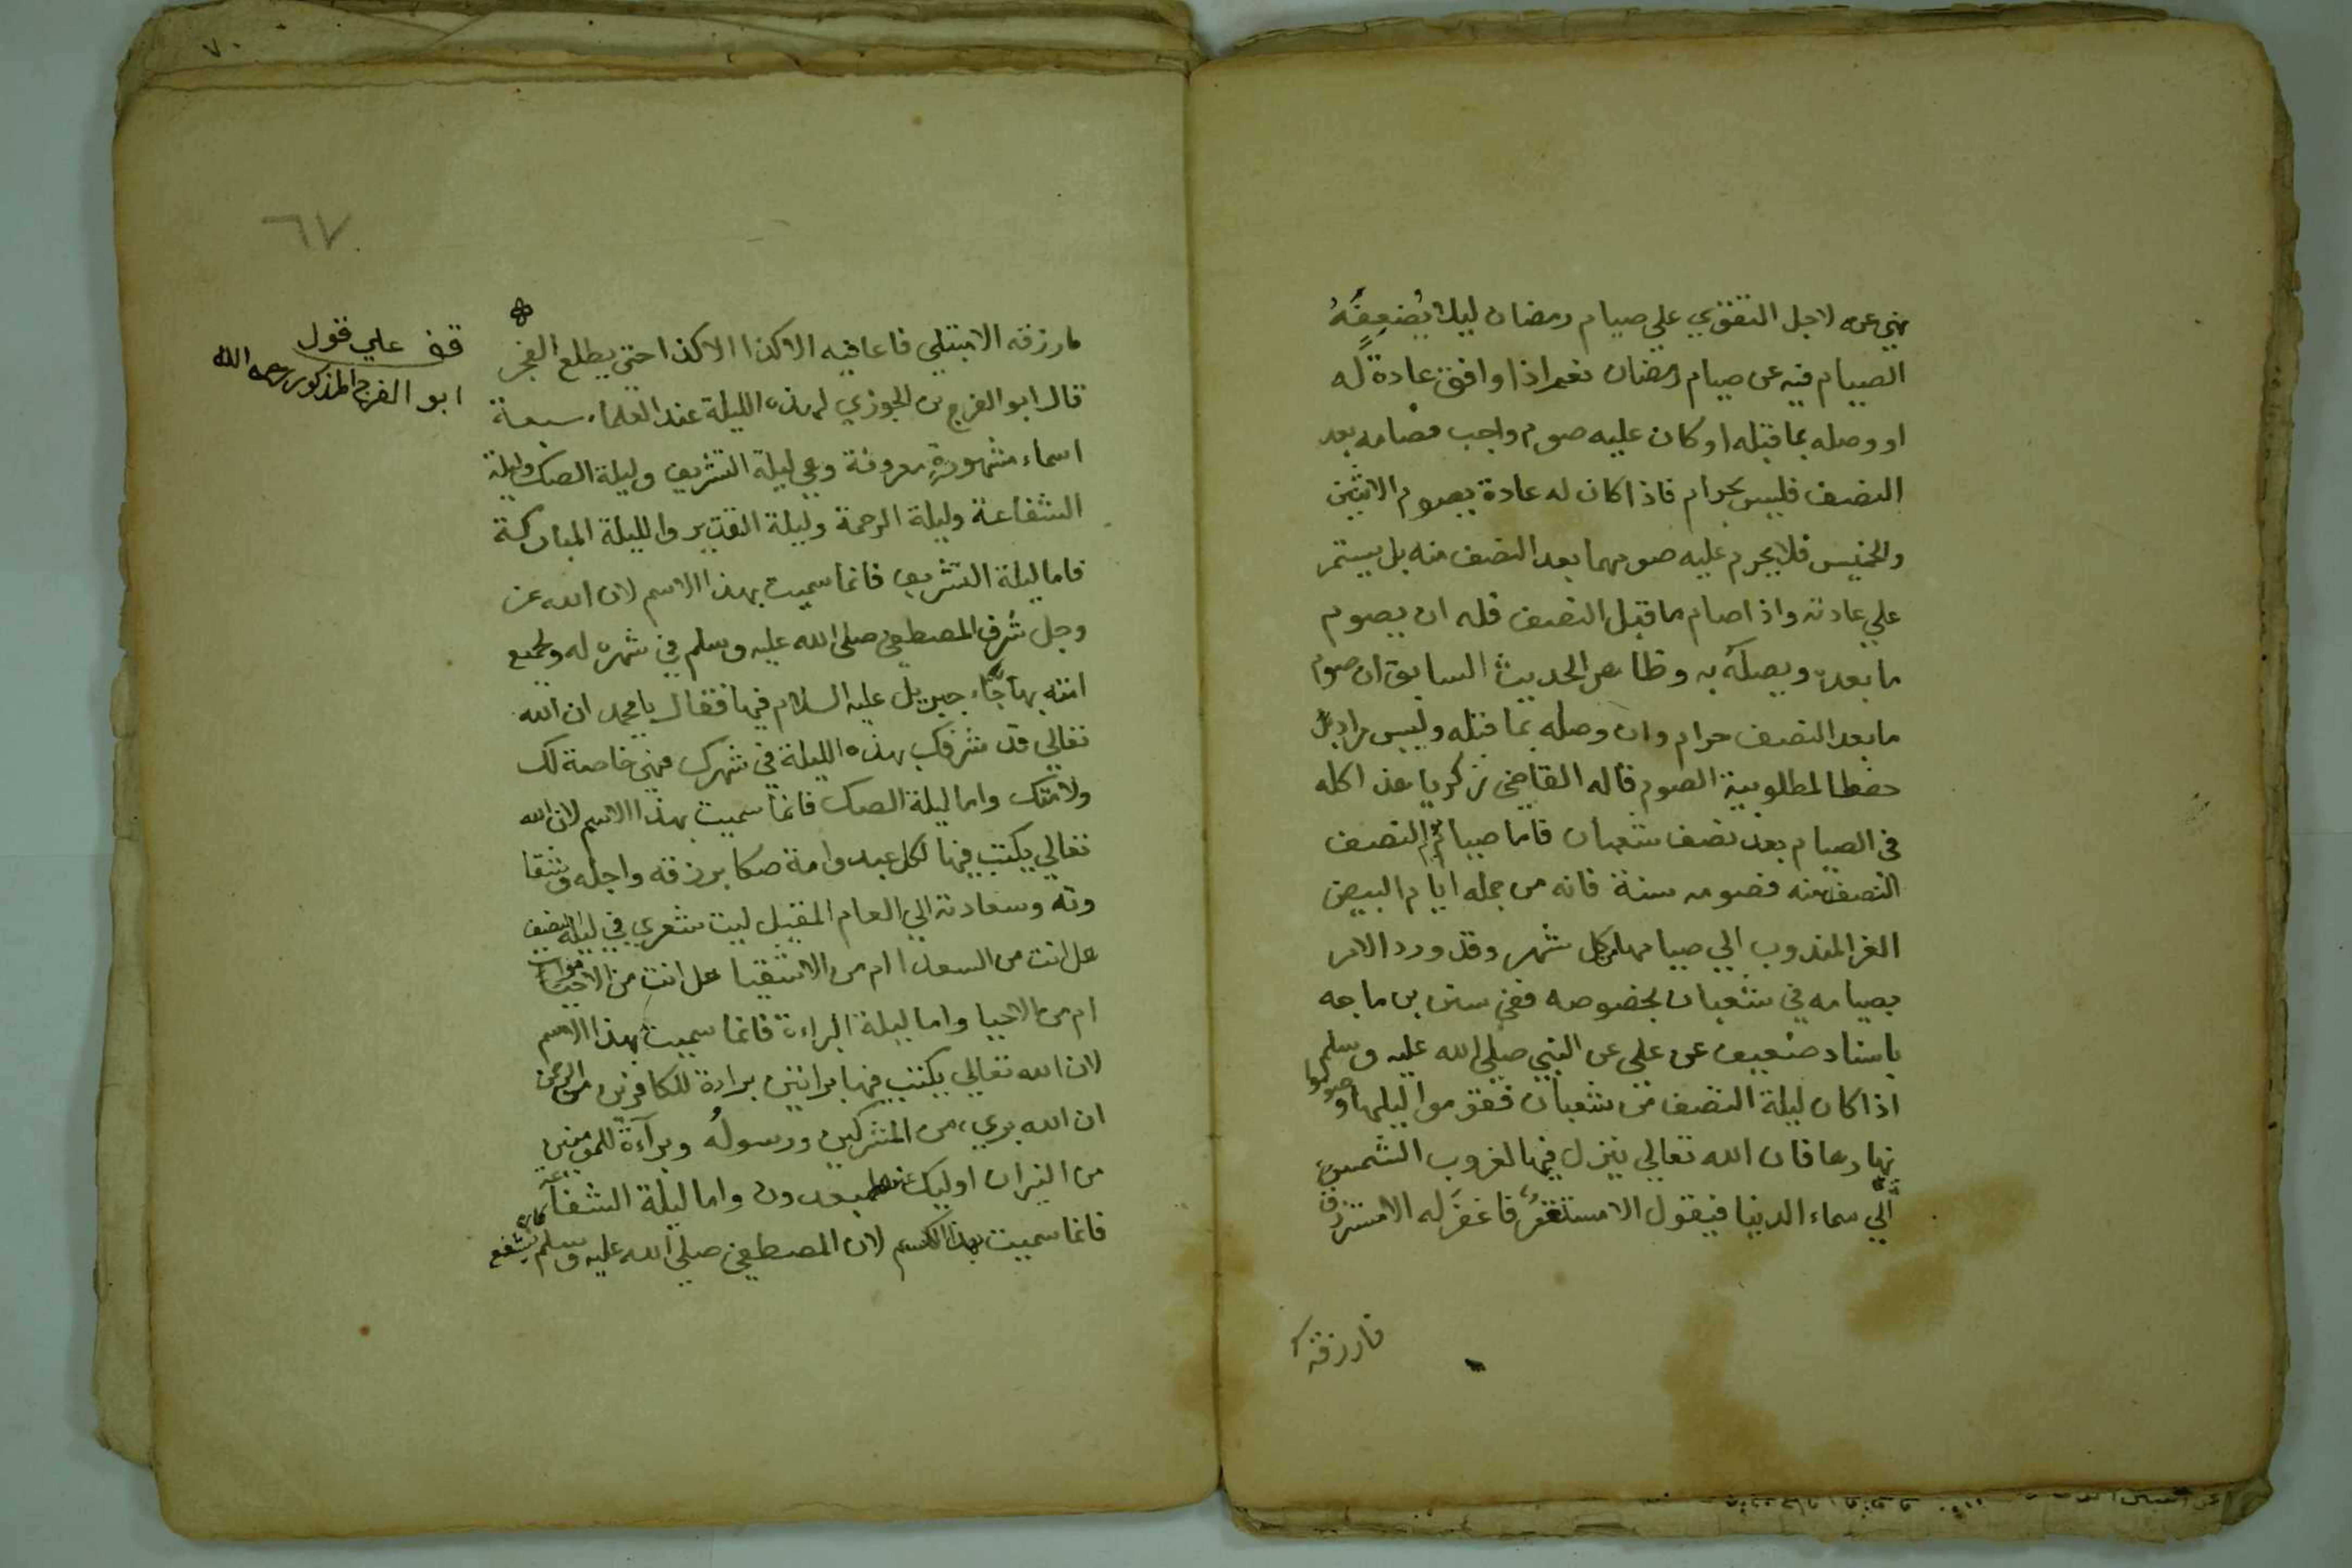 نهي عنه لاجل التقوي علي صيام رمضان ليلا يُضعِفَهُ
الصيام فيه عن صيام رمضان نعم اذا وافق عادةً له
او وصله بما قبله او كان عليه صوم واجب فصامه بعد
النصف فليس بحرام فاذا كان له عادة بصوم الاثنين
والخميس فلا يحرم عليه صومهما بعد النصف منه بل يستمر
علي عادته واذا صام ما قبل النصف فله ان يصوم
ما بعده ويصله به وظاهر الحديث السابق ان صوم
ما بعد النصف حرام وان وصله بما قبله وليس مراد بل
حفظا لمطلوبية الصوم قاله القاضي زكريا هذا كله
في الصيام بعد نصف شعبان فاما صيام يوم النصف
النصف منه فصومه سنة فانه من جمله ايام البيض
الغر المندوب الي صيامها من كل شهر وقد ورد الامر
بصيامه في شعبان بخصوصه ففي سنن بن ماجه
باسناد ضعيف عن علي عن النبي صلي الله عليه وسلم
اذا كان ليلة النصف من شعبان فقوموا ليلها وصوموا
نهارها فان الله تعالي ينزل فيها لغروب الشمس
الي سماء الدنيا فيقول الا مستغفر فاغفر له الا مسترزق
فارزقه
٦٧
فارزقه الا مبتلي فاعافيه الا كذا الا كذا حتي يطلع الفجر
قال ابو الفرج بن الجوزي لهذه الليلة عند العلماء سبعة
اسماء مشهورة معروفة وهي ليلة التشريف وليلة الصك وليلة
الشفاعة وليلة الرحمة وليلة التقدير والليلة المباركة
فاما ليلة التشريف فانما سميت بهذا الاسم لان الله عز
وجل شرف المصطفي صلي الله عليه وسلم في شهره له ولجميع
امته بها جاء جبريل عليه السلام فيها فقال يا محمد ان الله
تعالي قد شرفك بهذه الليلة في شهرك فهي خاصة لك
ولامتك واما ليلة الصك فانما سميت بهذا الاسم لان الله
تعالي يكتب فيها لكل عبد وامة صكا برزقه واجله وشقا
وته وسعادته الي العام المقبل ليت شعري في ليلة النصف
هل انت من السعدا ام من الاشقيا هل انت من الاموات
ام من الاحيا واما ليلة البراءة فانما سميت بهذا الاسم
لان الله تعالي يكتب فيها براتين براءة للكافرين من الرحمن
ان الله بريء من المشركين ورسولُه وبرآءة للمومنين
من النيران اوليك عنها مبعدون واما ليلة الشفاعة
فانما سميت بهذا الاسم لان المصطفي صلي الله عليه وسلم يشفع
قف علي قول
ابو الفرج المذكور رحمه الله